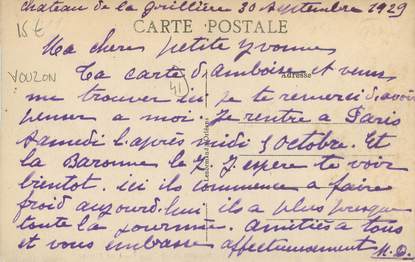 Chateau de la Grillière 30 Septembre 1929
15 €
CARTE POSTALE
Ma chere petite Yvonne
VOUZON
Ta carte d'amboise et venu
Adresse
41
me trouver ici je te remerci d'avoir
penser a moi. Je rentre a Paris
Samedi l'après midi 5 octobre. Et
la Baronne le 7. J'espere te voir
bientot. ici ils commence a faire
froid aujourd.hui ils a plus presque
toute la journne. amitiés a tous
et vous embrasse affectueusement M.D.